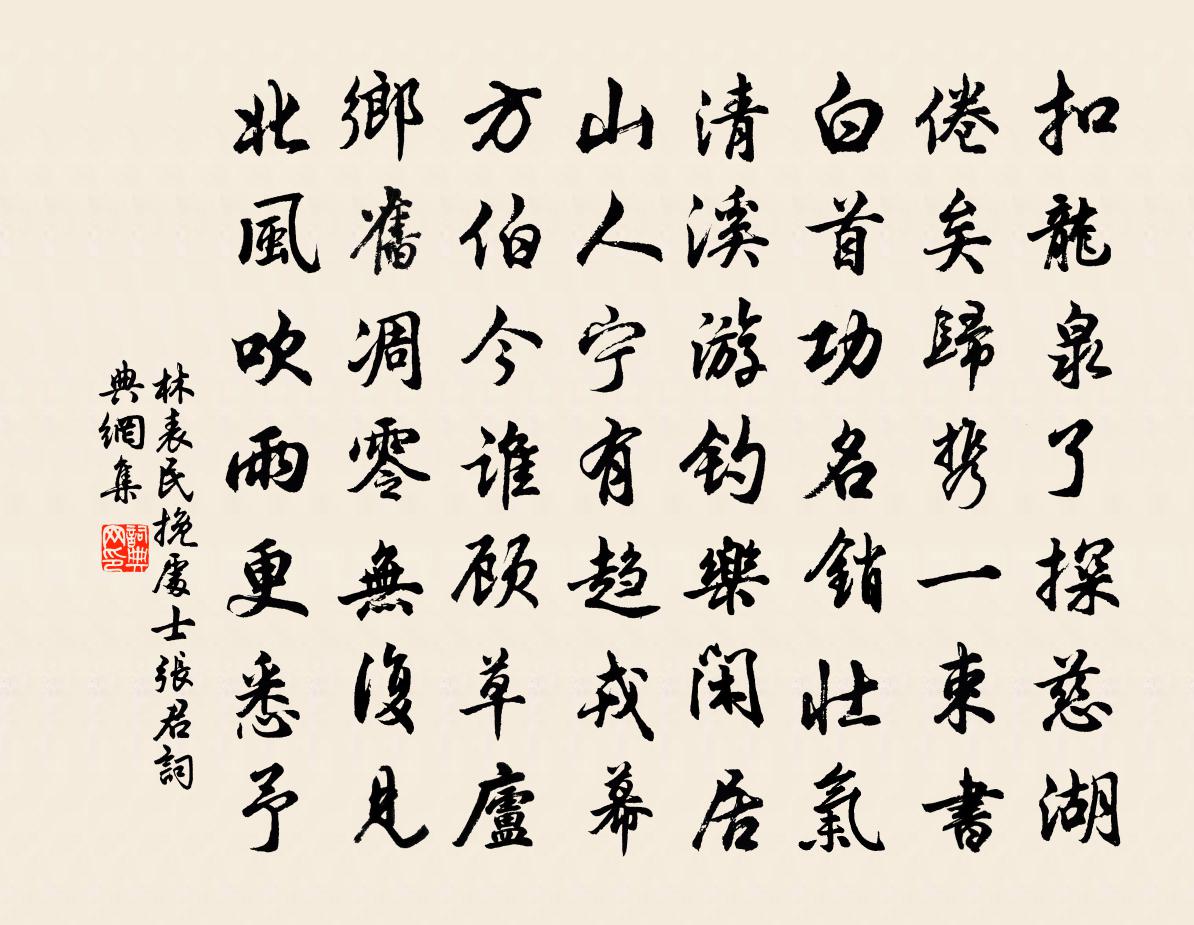 扣龍泉了探慈湖
倦矣歸携一束書
白首功名銷壮氣
清溪游钓樂闲居
山人宁有趋戎幕
方伯今谁顾草廬
鄉舊凋零無復見
北風吹雨更悉予
林表民挽處士張君詞
典網集
詞典网印